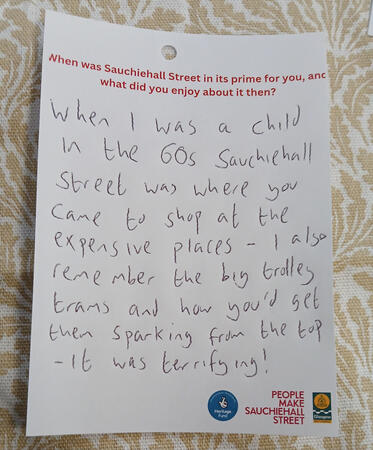 When was Sauchiehall Street in its prime for you, and
what did you enjoy about it then?
When I was a child
in the 60s Sauchiehall
Street was where you
came to shop at the
expensive places - I also
remember the big trolley
trams and how you'd get
them sparking from the top
- It was terrifying!
Heritage
Fund
PEOPLE
MAKE
SAUCHIEHALL
STREET
Glasgow